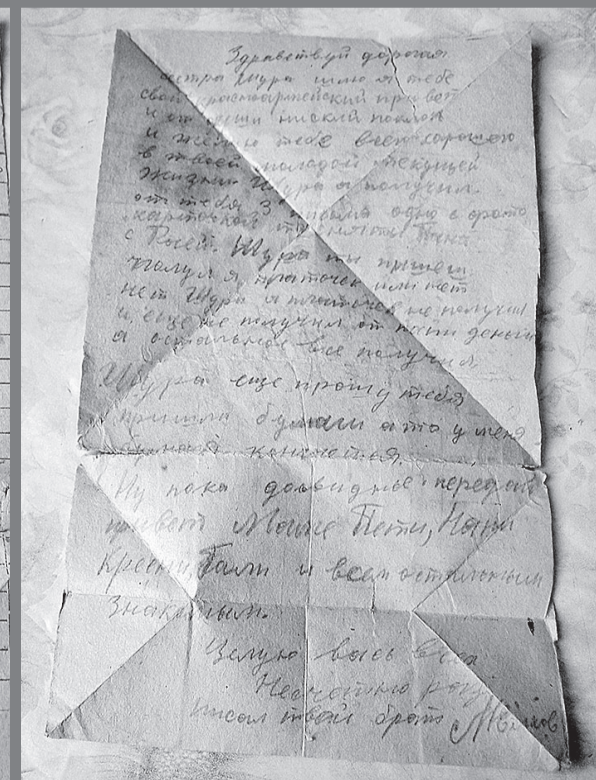 Здравствуй дорогая
сестра Шура шлю я тебе
свой красноармейский привет
и от души ниский поклон
и желаю тебе всего хорошего
в твоей молодой текущей
жизни Шура я получил
от тебя 3 письма одно с фото
карточкой
с Раей. Шура ты пишеш
получил я платочек или нет
нет Шура я платочек не получил
и еще не получил от деньги
а остальное все получил
Шура еще прошу тебя
пришли бумаги а то у меня
бумага кончается.
Ну пока досвидание передай
привет Маме Пети,
Крёсни, Гали и всем остальным
знакомым.
Целую вас всех
Несчотно раз
писал твой брат